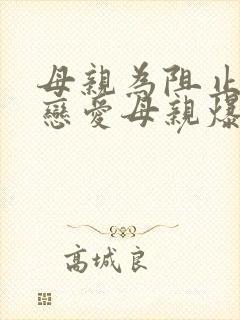 母親為阻止
戀愛母親爆
高城良